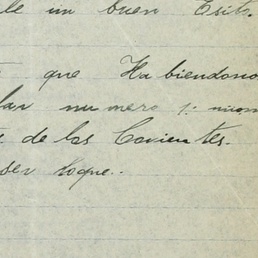 le un buen Esito.
que Habiendono
lar numero 1: nues
de los Corientes.
ser toque..